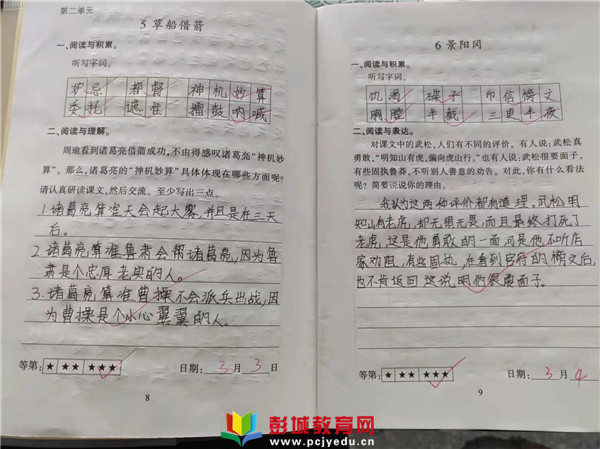 第二单元
5 草船借箭
一、阅读与积累。
听写字词。
妒忌 都督 神机妙算
委托 遮住 擂鼓呐喊
二、阅读与理解。
周瑜看到诸葛亮借箭成功,不由得感叹诸葛亮“神机妙
算”。那么,诸葛亮的“神机妙算”具体体现在哪些方面呢?
请认真研读课文,然后交流。至少写出三点。
1.诸葛亮算准天会起大雾,并且是在三天
后。
2.诸葛亮算准鲁肃会帮诸葛亮,因为鲁
肃是个忠厚老实的人。
3.诸葛亮算准曹操不会派兵出战,因
为曹操是个小心翼翼的人。
等第: ★ ★★ ★★★ 日期: 3 月 3 日
8
6 景阳冈
一、阅读与积累。
听写字词。
饥渴 碟子 印信榜文
胸膛 半截 三更半夜
二、阅读与表达。
对课文中的武松,人们有不同的评价。有人说:武松真
勇敢,“明知山有虎,偏向虎山行。”也有人说:武松很要面子,
有些固执鲁莽,不听别人善意的劝告。对此,你有什么看法
呢?简要说说你的理由。
我认为这两他评价都有道理,武松明
知山有老虎,却无畏无惧,而且最终打死了
老虎,这是他勇敢的一面,可是他不听店
家劝阻,有些固执,在看到官府的榜文后,
也不肯返回,这说明他很要面子。
等第: ★ ★★ ★★★ 日期: 3 月 4
9
彭城教育网
www.pcjyedu.cn